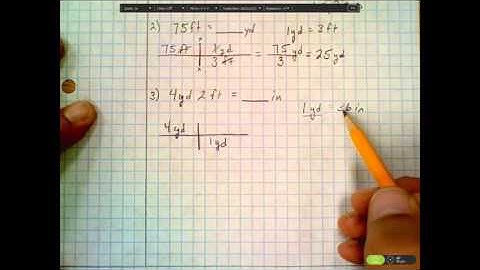 2) 75ft = ____ yd 1yd = 3ft
75ft 1yd = 75 yd = 25yd
3ft 3
3) 4yd 2ft = ____ in
1yd = 36in
4yd
1yd